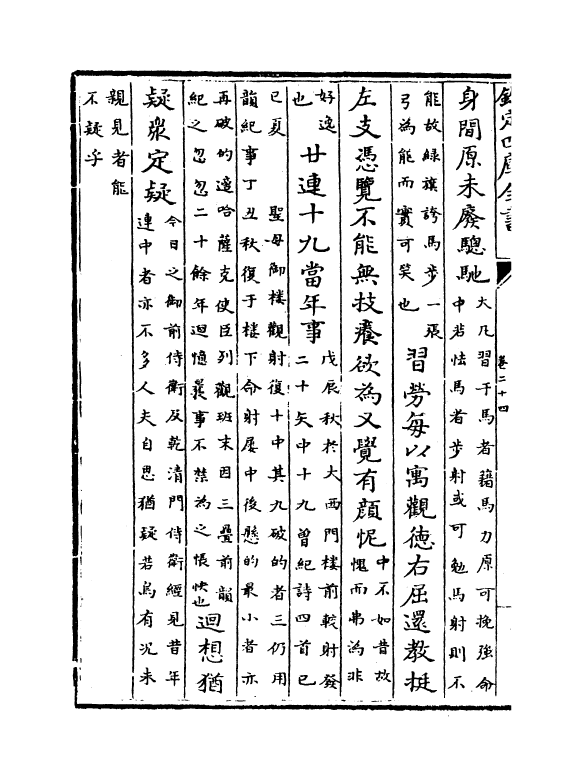 欽定四庫全書
卷二十四
身間原未廢驄馳大凡習于馬者藉馬力原可挽強命
中若怯馬者步射或可勉馬射則不
能故綠旗誇馬步一張
弓為能而實可笑也習勞每以寓觀德右屈還教挺
左支憑覽不能無技癢欲為又覺有顏忸中不如昔故
愧而弗為非
好逸
也廿連十九當年事戊辰秋於大西門樓前較射發
二十矢中十九曾紀詩四首已
已夏 聖母御樓觀射復十中其九破的者三仍用
韻紀事丁丑秋復于樓下命射屢中後懸的最小者亦
再破的適哈薩克使臣列觀班末因三疊前韻
紀之忽忽二十餘年迴憶曩事不禁為之悵怏也迴想猶
疑衆定疑今日之御前侍衛及乾清門侍衛經見昔年
連中者亦不多人夫自思猶疑若烏有況未
親見者能
不疑乎